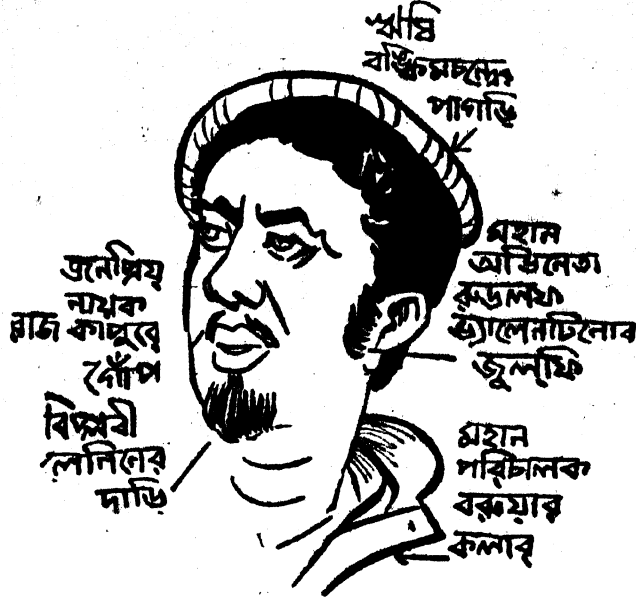 ঋষি
বঙ্কিমচন্দ্রের
পাগড়ি
মহান
অভিনেতা
রুডলফ
ভ্যালেনটিনোর
জুল্ফি
জনপ্রিয়
নায়ক
রাজ কাপুরের
গোঁপ
বিপ্লবী
লেনিনের
দাড়ি
মহান
পরিচালক
বরুয়ার
কলার